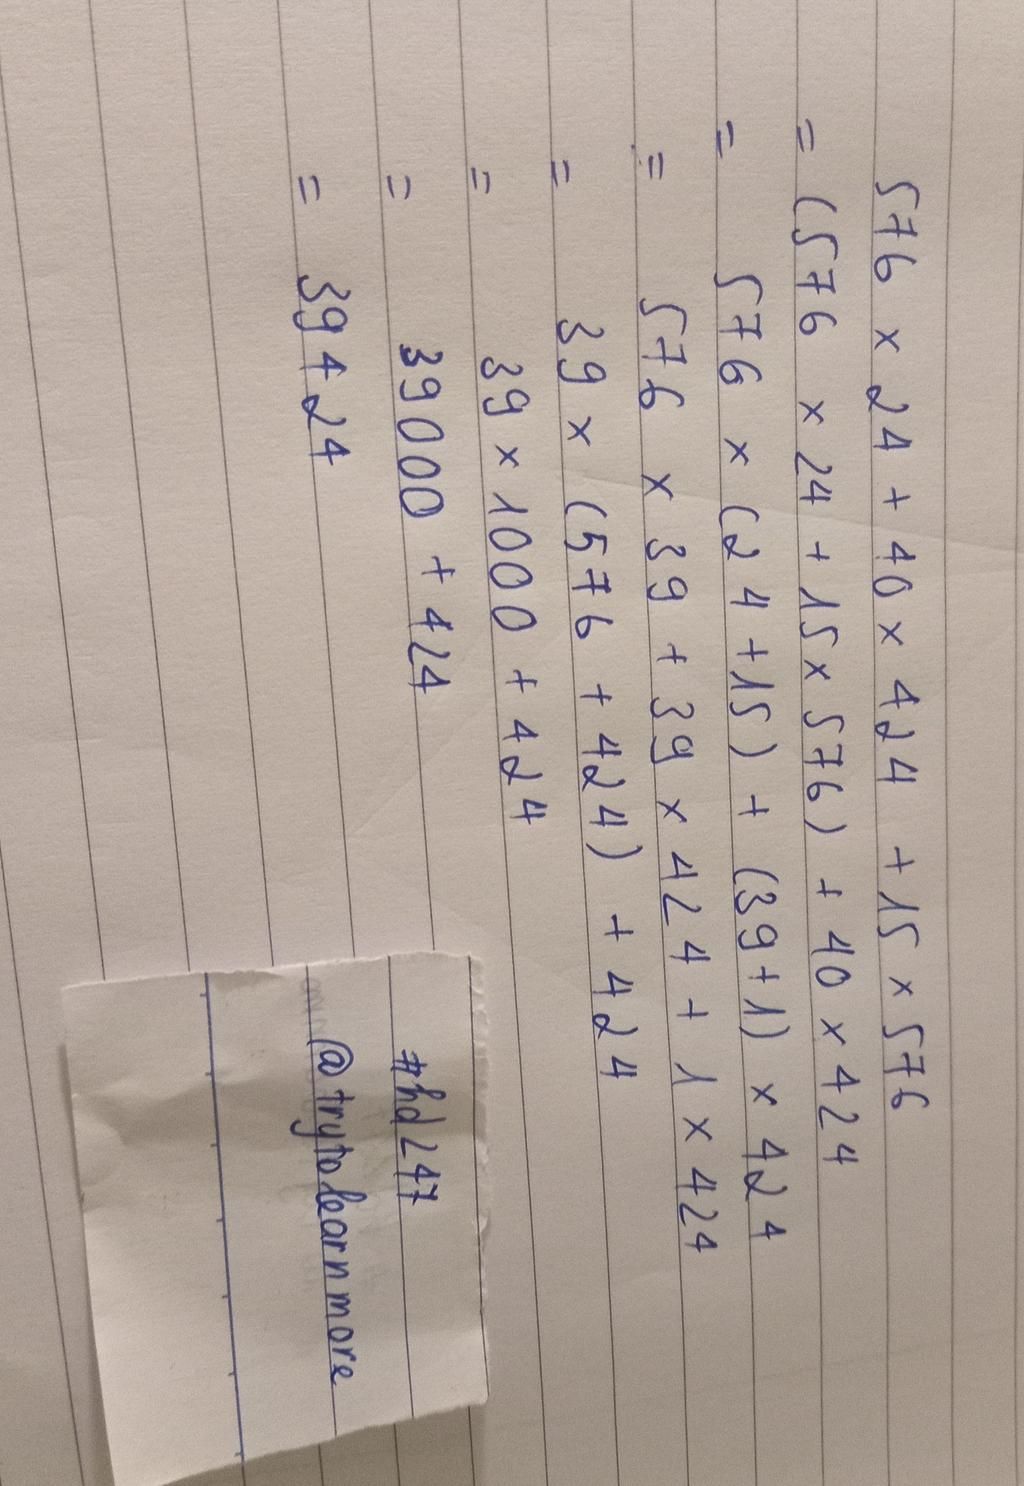 576 × 24 + 40 × 424 + 15 × 576
= (576 × 24 + 15 × 576) + 40 × 424
= 576 × (24 + 15) + (39 + 1) × 424
= 576 × 39 + 39 × 424 + 1 × 424
= 39 × (576 + 424) + 424
= 39 × 1000 + 424
= 39000 + 424
= 39424
#hd247
@trytolearnmore